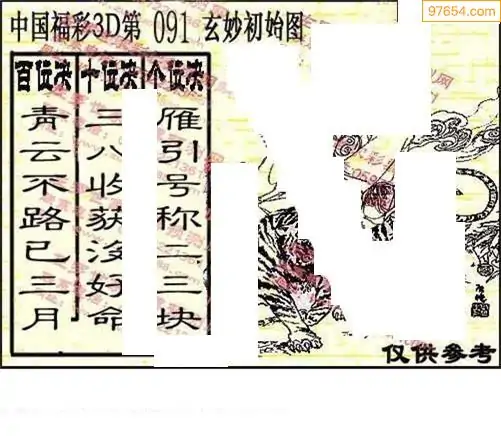 97654.com
中国福彩3D第 091 玄妙初始图
百位决 十位决 个位决
青云不路已三月
三八收获没好命
雁引号称二三块
仅供参考